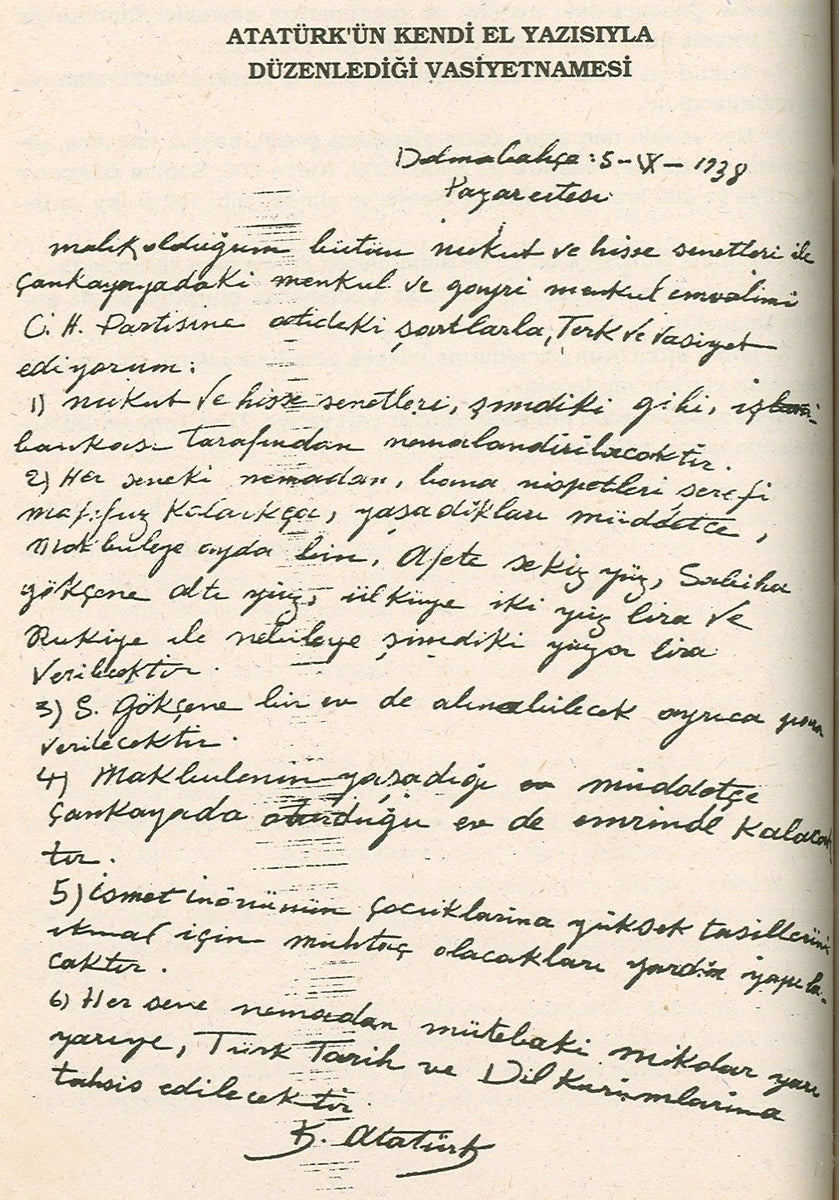 ATATÜRK'ÜN KENDİ EL YAZISIYLA
DÜZENLEDİĞİ VASİYETNAMESİ
Dolmabahçe: 5-IX-1938
Pazartesi
malik olduğum bütün nukut ve hisse senetleri ile
çankayadaki menkul ve gayri menkul emvalimi
C. H. Partisine atideki şartlarla, Terk ve vasiyet
ediyorum:
1) nukut ve hisse senetleri, şimdiki gibi, iş
bankası tarafından nemalandırılacaktır.
2) Her seneki nemadan, bana nispetleri şerefi
mahfuz kaldıkça, yaşadıkları müddetçe,
Makbuleye ayda bin, Afete sekiz yüz, Sabiha
gökçene altı yüz, ülküye iki yüz lira ve
Rukiye ile nebileye şimdiki yüzer lira
verilecektir.
3) S. Gökçene bir ev de alınabilecek ayrıca para
verilecektir.
4) Makbulenin yaşadığı müddetçe
Çankayada oturduğu ev de emrinde kalacak
tır.
5) İsmet inönünün çocuklarına yüksek tasillerini
ikmal için muhtaç olacakları yardım yapıla-
caktır.
6) Her sene nemadan mütebaki mikdar yarı
yarıye, Türk Tarih ve Dil Kurumlarına
tahsis edilecektir.
K. Atatürk